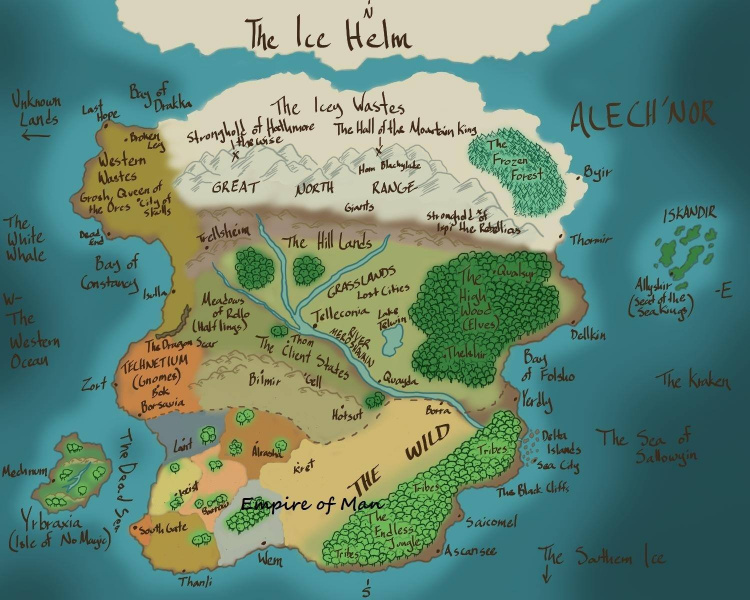 N
The Ice Helm
Unknown
Lands
Bay of
Drakka
Last
Hope
The Icey Wastes
ALECH'NOR
Broken
Leg
Stronghold of Hathmore
the wise
The Hall of the Mountain King
The
Frozen
Forest
Western
Wastes
Horn Blachylake
Byir
Grosh, Queen of
the Orcs
City of
Skulls
GREAT NORTH RANGE
Giants
Stronghold of
Ispi the Rebellias
The
White
Whale
Dead
End
Trellsheim
The Hill Lands
Thormir
ISKANDIR
Bay of
Constancy
Isulla
GRASSLANDS
Lost Cities
The
High
Wood
(Elves)
Qualsyr
Allyshir
(Seat of the
Sea Kings)
-E
W-
The
Western
Ocean
Meadows
of Rello
(Halflings)
Telleconia
Lake
Telwin
RIVER
The Dragon Scar
The
Client States
Thom
Thelshir
Dellkin
TECHNETIUM
(Gnomes)
Bok
Borsavia
Zort
Bilmir
Gell
Quayda
Bay
of
Folsho
The Kraken
Hotsut
Borra
Yerdly
Laint
Alrasha
Kret
THE WILD
Tribes
Delta
Islands
Sea City
The Sea of
Sallowyin
Mechnum
The Dead Sea
Keist
Burrow
Empire of Man
Tribes
The Black Cliffs
Yrbraxia
(Isle of No Magic)
South Gate
The
Endless
Jungle
Saicomel
Tribes
Ascarisee
Wem
Thanli
The Southern Ice
S